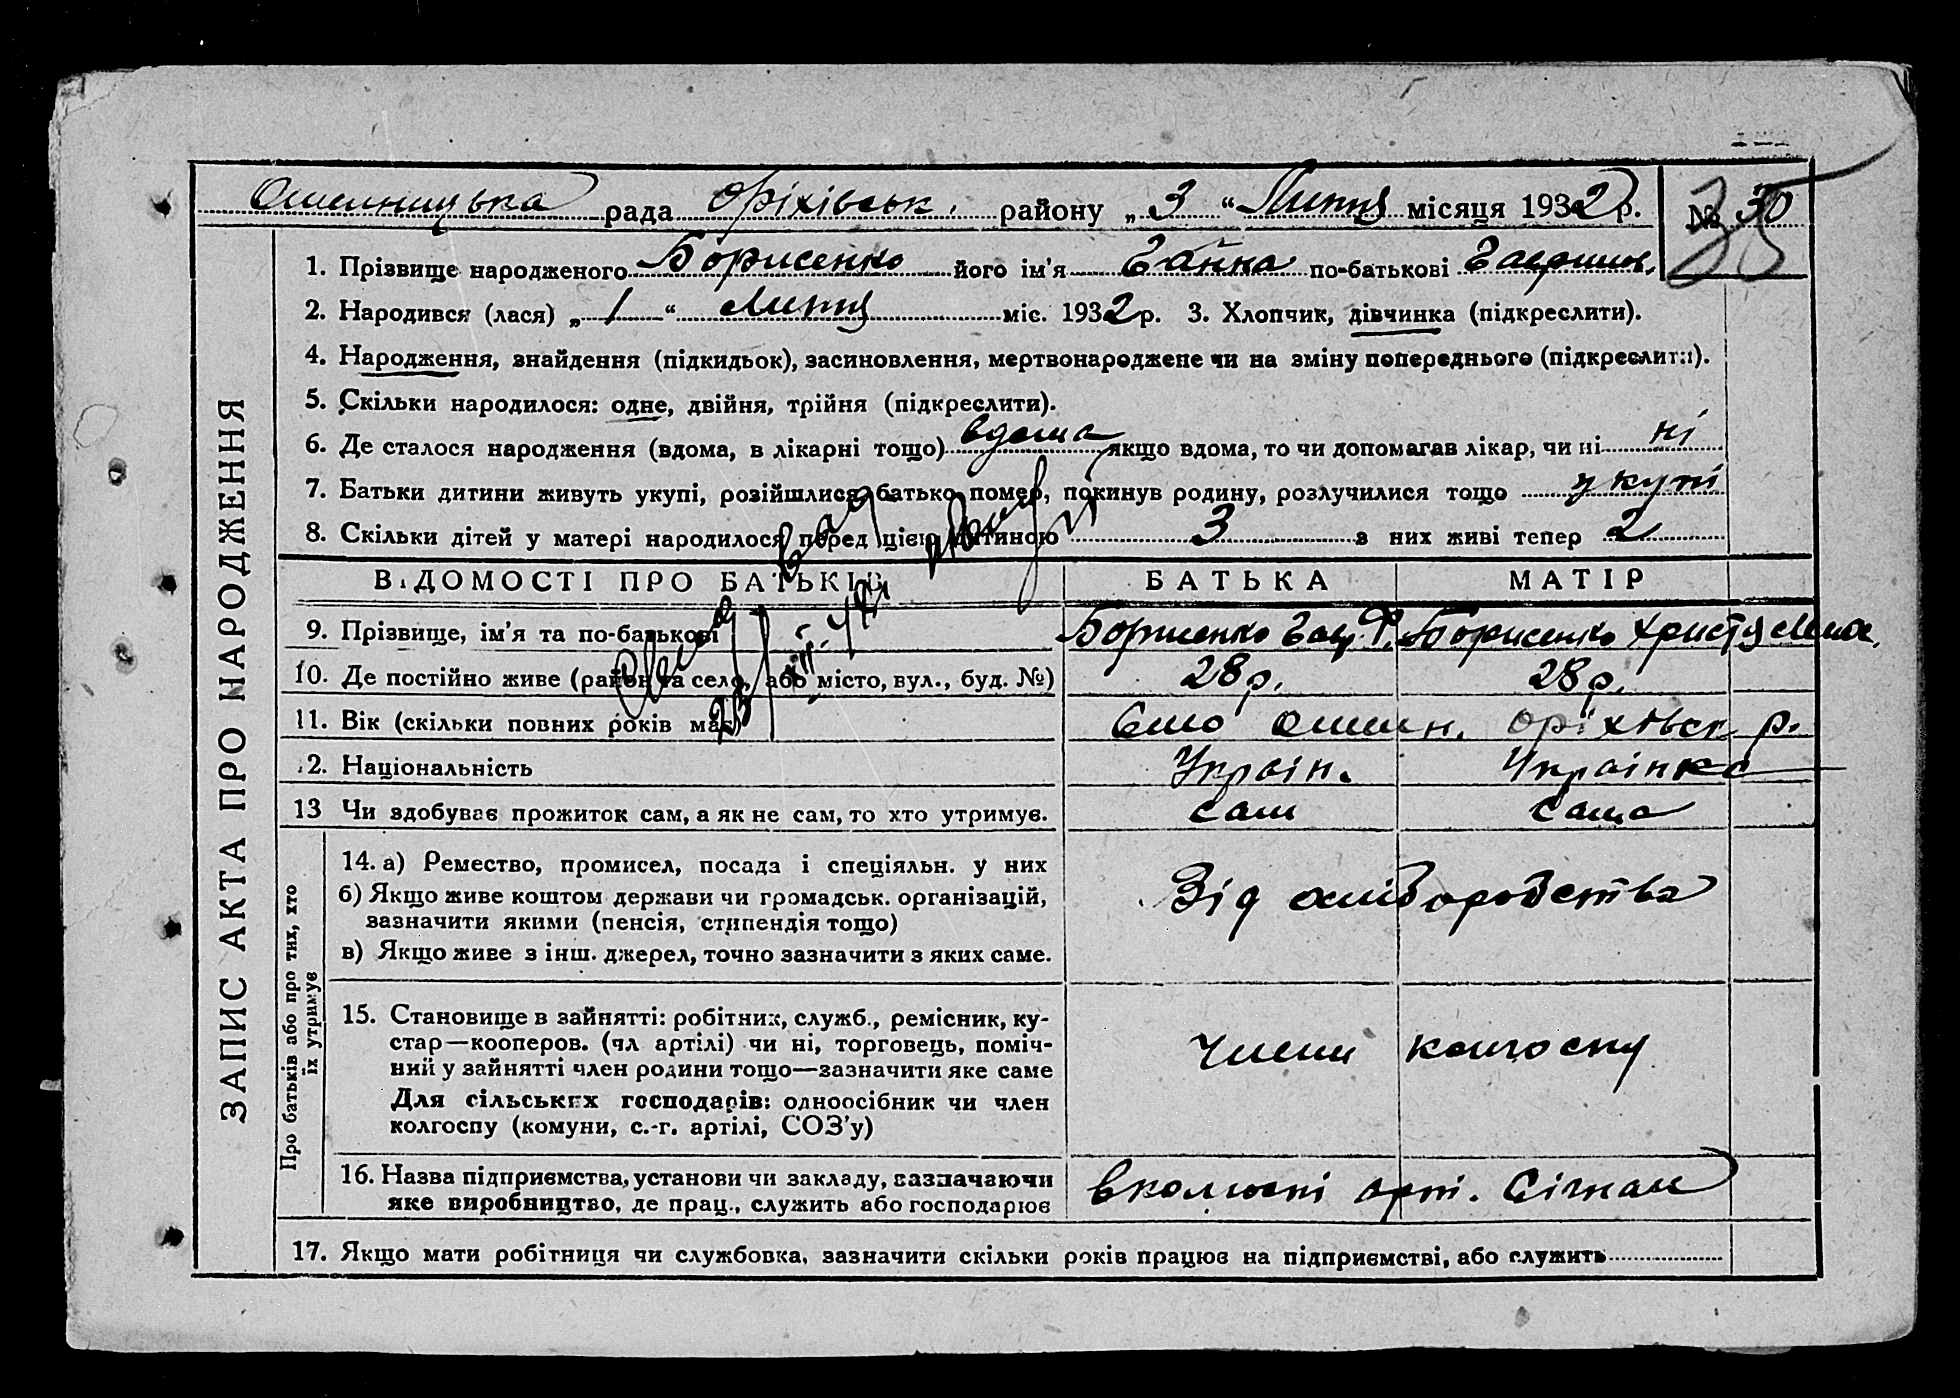 Омельницька рада Оріхівськ. району „ 3 “ Липця місяця 1932 р. № 30 35
ЗАПИС АКТА ПРО НАРОДЖЕННЯ
1. Прізвище народженого Борисенко його ім'я Ганна по-батькові Гаврилов.
2. Народився (лася) „ 1 “ Липця міс. 1932 р. 3. Хлопчик, дівчинка (підкреслити).
4. Народження, знайдення (підкидьок), засиновлення, мертвонароджене чи на зміну попереднього (підкреслити).
5. Скільки народилося: одне, двійня, трійня (підкреслити).
6. Де сталося народження (вдома, в лікарні тощо) вдома якщо вдома, то чи допомагав лікар, чи ні ні
7. Батьки дитини живуть укупі, розійшлися, батько помер, покинув родину, розлучилися тощо укупі
8. Скільки дітей у матері народилося перед цією дитиною 3 з них живі тепер 2
ВІДОМОСТІ ПРО БАТЬКІВ БАТЬКА МАТІР
9. Прізвище, ім'я та по-батькові Борисенко Гавр. Ф. Борисенко Христя
10. Де постійно живе (район та село, або місто, вул., буд. №) 28 р. 28 р.
11. Вік (скільки повних років має) Село Омельн. Оріхівськ р.
12. Національність Україн. Українка
13 Чи здобуває прожиток сам, а як не сам, то хто утримує. сам сама
Про батьків або про тих, хто їх утримує
14. а) Ремество, промисел, посада і спеціяльн. у них
б) Якщо живе коштом держави чи громадськ. організацій,
зазначити якими (пенсія, стипендія тощо)
в) Якщо живе з інш. джерел, точно зазначити з яких саме.
Від хліборобства
15. Становище в зайнятті: робітник, служб., ремісник, ку-
стар—кооперов. (чл артілі) чи ні, торговець, поміч-
ний у зайнятті член родини тощо—зазначити яке саме
Для сільських господарів: одноосібник чи член
колгоспу (комуни, с.-г. артілі, СОЗ'у)
Члени колгоспу
16. Назва підприємства, установи чи закладу, зазначаючи
яке виробництво, де прац., служить або господарює
в колгоспі арт.
17. Якщо мати робітниця чи службовка, зазначити скільки років працює на підприємстві, або служить